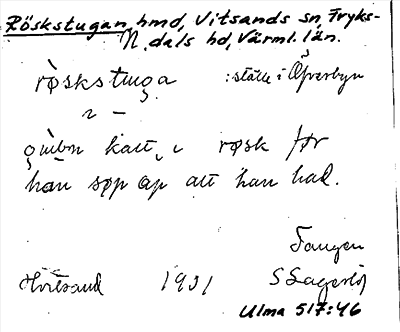 Röskstugan, hmd, Vitsands sn, Fryks-
N. dals hd, Värml. län.
røskstuga : ställe i Öfverbyn
katt, i røsk før
han søp op att han had.
Tangen
Hvitsand 1931 S Lagerlöf
Ulma 517:46